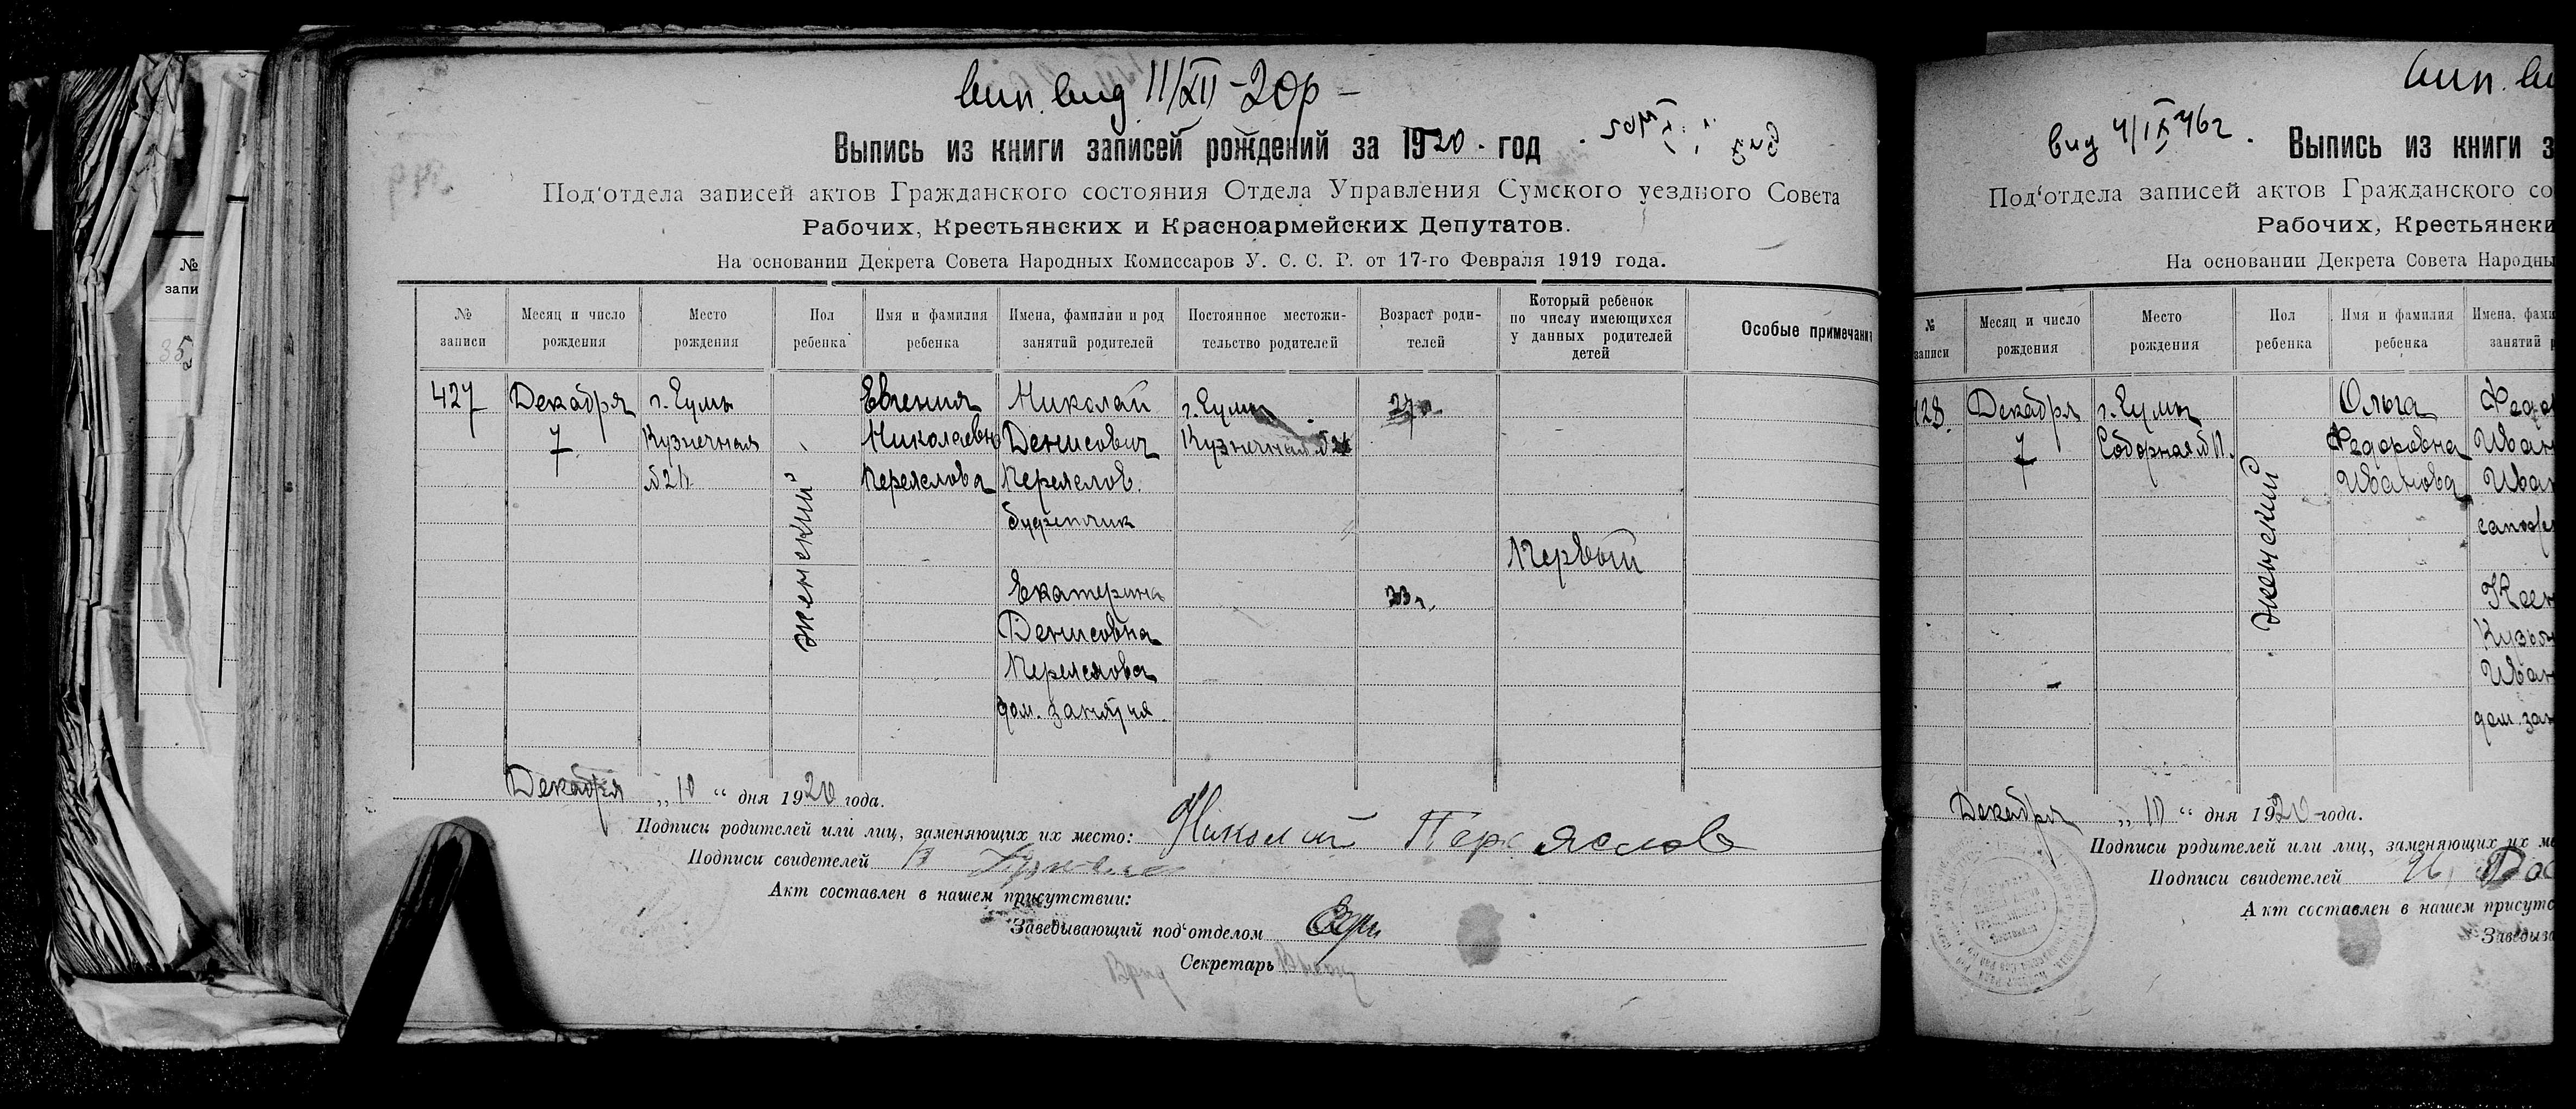 вип. вид 11/XII-20р –
Выпись из книги записей рождений за 1920. год
Под'отдела записей актов Гражданского состояния Отдела Управления Сумского уездного Совета
Рабочих, Крестьянских и Красноармейских Депутатов.
На основании Декрета Совета Народных Комиссаров У. С. С. Р. от 17-го Февраля 1919 года.
№ записи
Месяц и число рождения
Место рождения
Пол ребенка
Имя и фамилия ребенка
Имена, фамилии и род занятий родителей
Постоянное местожительство родителей
Возраст родителей
Который ребенок по числу имеющихся у данных родителей детей
Особые примечания
427
Декабря
7
г. Сумы
Кузнечная
женский
Евгения
Николаевна
Переяслова
Николай
Денисович
Переяслов.
Екатерина
Денисовна
Переяслова
дом. занятия
г. Сумы
Кузнечная
27
33 г.
Первый
Декабря „10“ дня 1920 года.
Подписи родителей или лиц, заменяющих их место: Николай Переяслов
Подписи свидетелей
Акт составлен в нашем присутствии:
Заведывающий под'отделом
Секретарь
№
запи
вип.
вид 4/IX 46г.
Выпись из книги з
Под'отдела записей актов Гражданского со
Рабочих, Крестьянски
На основании Декрета Совета Народны
№ записи
Месяц и число рождения
Место рождения
Пол ребенка
Имя и фамилия ребенка
Имена, фами
занятий р
428.
Декабря
7
г. Сумы
Соборная
женский
Ольга
Федоровна
Иванова
Федо
Иван
Иван
сапож
Ксен
Кузьм
Иван
дом. зан
Декабря „10“ дня 1920 года.
Подписи родителей или лиц, заменяющих их ме
Подписи свидетелей
Акт составлен в нашем присутс
Заведыва